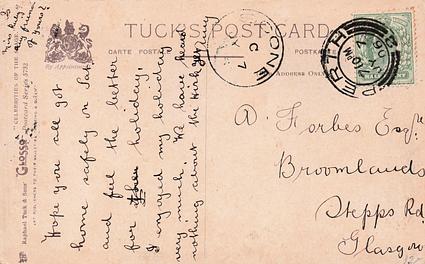 Is
Miss Kirby
any friend
of yours?
TUCK'S POST CARD
CARTE POSTALE
POSTKARTE
By Appointment
ADDRESS ONLY
PERTH
7.10 PM
06
Raphael Tuck & Sons'
"CELEBRITIES OF THE
"Glosso" Postcard Series 5772
Hope you all got
home safely on Sat
and feel the better
for holiday.
I enjoyed my holiday
very much. We have heard
nothing about the kirk
A. Forbes Esqre
Broomlands
Stepps Rd
Glasgow